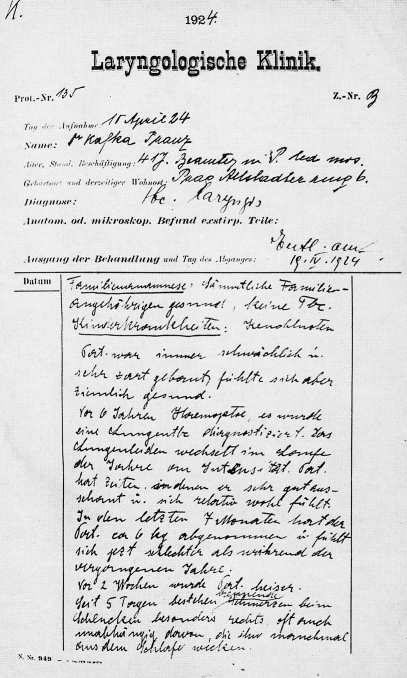 1924.
Laryngologische Klinik.
Prot.-Nr. 135 Z.-Nr.
Tag der Aufnahme 10 April 24
Name: Dr Kafka Franz
Alter, Stand, Beschäftigung: 41 J. Beamter in P. led mos.
Geburtsort und derzeitiger Wohnort: Prag Altstädter ring 6.
Diagnose: tbc. laryngis
Anatom. od. mikroskop. Befund exstirp. Teile:
Ausgang der Behandlung und Tag des Abganges: Entl. am 19. IV. 1924
Datum
Familienanamnese: Sämmtliche Familien-
angehörigen gesund, keine Tbc.
Kinderkrankheiten: Keuchhusten
Pat. war immer schwächlich u.
sehr zart gebaut, fühlte sich aber
ziemlich gesund.
Vor 6 Jahren Haemoptoe, es wurde
eine Lungentbc diagnostiziert. Das
Lungenleiden wechselt im Laufe
der Jahre an Intensität. Pat.
hat Zeiten, in denen er sehr gut aus-
schaut u. sich relativ wohl fühlt.
In den letzten 7 Monaten hat der
Pat. ca 6 kg abgenommen u. fühlt
sich jetzt schlechter als während der
vergangenen Jahre.
Vor 2 Wochen wurde Pat. heiser.
Seit 5 Tagen bestehen brennende Schmerzen beim
Schlucken besonders rechts, oft auch
unabhängig davon, die ihn manchmal
aus dem Schlafe wecken.
N. Nr. 949